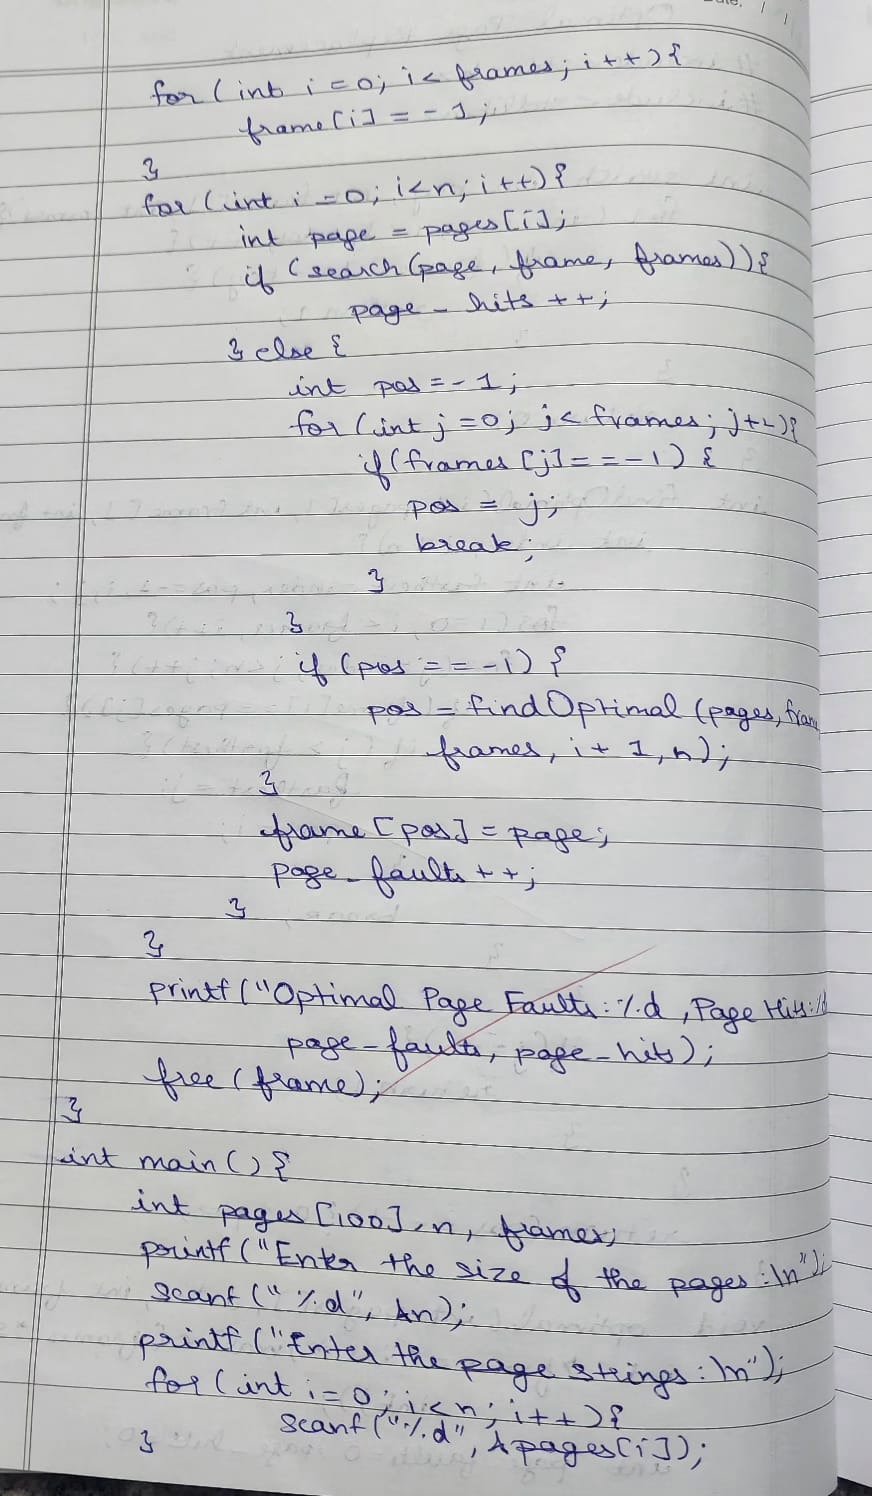 for (int i = 0; i < frames; i++) {
frame[i] = -1;
}
for (int i = 0; i<n; i++) {
int page = pages[i];
if (search (page, frame, frames)) {
page_hits ++;
} else {
int pos = -1;
for (int j = 0; j < frames; j++) {
if (frames [j] == -1) {
pos = j;
break;
}
}
if (pos == -1) {
pos = findOptimal (pages, fram
frames, i + 1, n);
}
frame [pos] = page;
page_faults ++;
}
}
printf ("Optimal Page Faults: %d , Page Hits: %d
page_faults, page_hits);
free (frame);
}
int main () {
int pages [100], n, frames;
printf ("Enter the size of the pages : \n");
scanf (" %d", &n);
printf ("Enter the page strings : \n");
for (int i = 0; i<n; i++) {
scanf ("%d", &pages[i]);
}